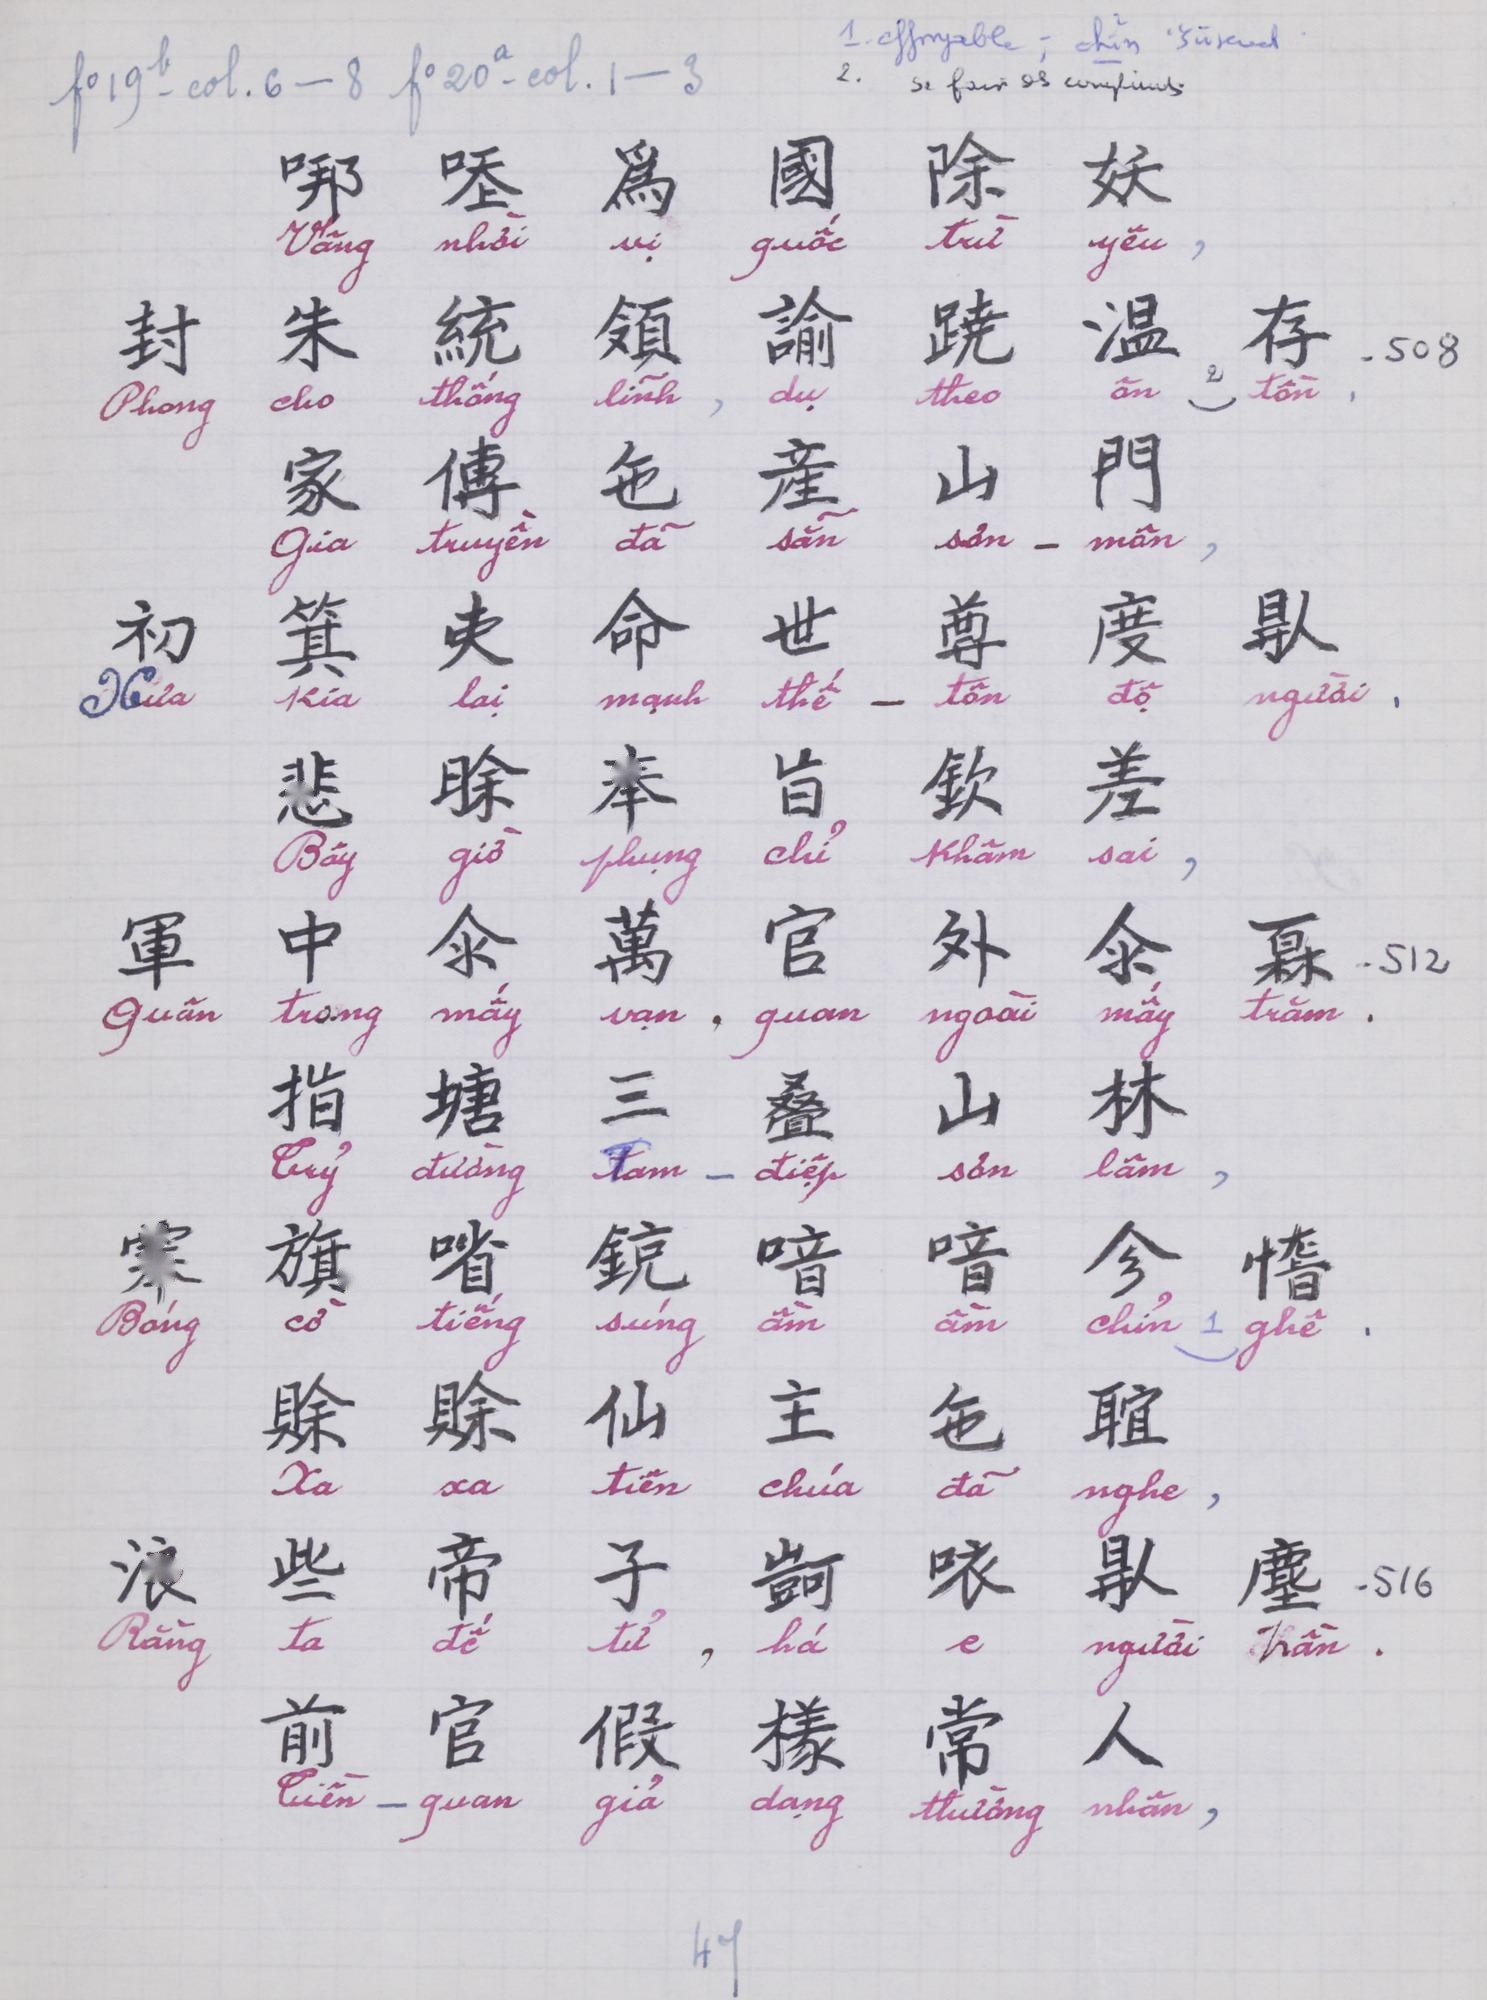 fº 19b - col. 6 — 8 fº 20a - col. 1 — 3
1. effroyable ; chỉn
2. se fair
㖠 𡎝 爲 國 除 妖
Vâng nhời vị quốc trừ yêu,
封 朱 統 領 諭 蹺 温 存 - 508
Phong cho thống lĩnh, dụ theo ôn 2 tồn.
家 傳 㐌 産 山 門
Gia truyền đã sẵn sơn - môn,
初 箕 吏 命 世 尊 度 𠊛
Xưa kia lại mạnh thế - tôn độ người.
悲 睬 奉 旨 欽 差
Bây giờ phụng chỉ khâm sai,
軍 中 氽 萬 官 外 氽 𤾓 - 512
Quân trong mấy vạn, quan ngoài mấy trăm.
指 塘 三 叠 山 林
Trỷ đường Tam - điệp sơn lâm,
旗 㗂 銃 喑 喑 㐱
Bóng cờ tiếng súng ầm ầm chỉn 1 ghê.
賖 賖 仙 主 㐌 𦖑
Xa xa tiên chúa đã nghe,
浪 些 帝 子 㗇 𠊛 塵 - 516
Rằng ta đế tử, há e người trần.
前 官 假 樣 常 人
Tiền - quan giả dạng thường nhân,
47